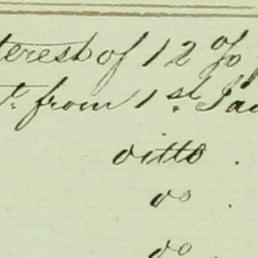 terest of 12 %
t. from 1st. Jan
ditto .
do .
do